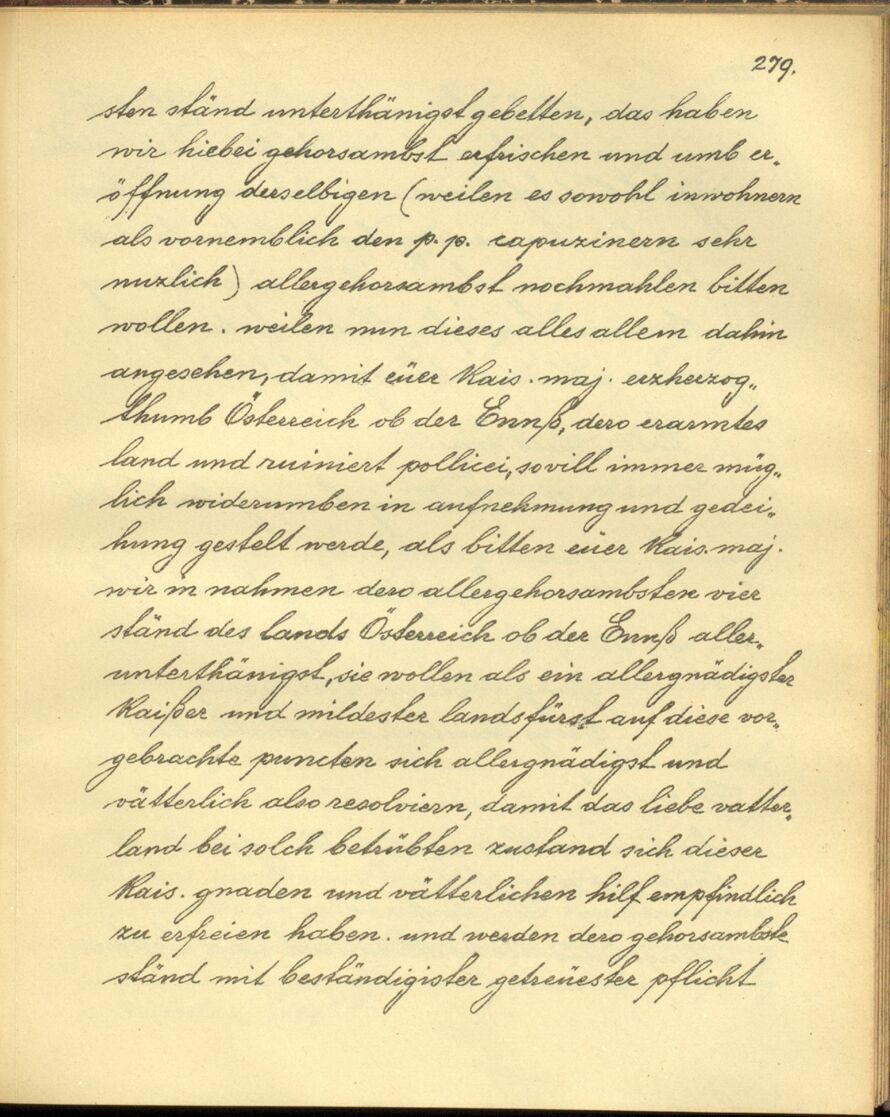 279.
sten ständ unterthänigst gebetten, das haben
wir hiebei gehorsambst erfrischen und umb er„
öffnung derselbigen (weilen es sowohl inwohnern
als vornemblich den p. p. capuzinern sehr
nuzlich) allergehorsambst nochmahlen bitten
wollen. weilen nun dieses alles allein dahin
angesehen, damit eüer Kais. maj. erzherzog„
thumb Österreich ob der Ennß, dero erarmtes
land und ruiniert pollicei, sovill immer müg„
lich widerumben in aufnehmung und gedei„
hung gestelt werde, als bitten eüer Kais. maj.
wir in nahmen dero allergehorsambsten vier
ständ des lands Österreich ob der Ennß aller„
unterthänigst, sie wollen als ein allergnädigster
Kaißer und mildester landsfürst auf diese vor„
gebrachte puncten sich allergnädigst und
vätterlich also resolviern, damit das liebe vatter„
land bei solch betrübten zustand sich dieser
Kais. gnaden und vätterlichen hilf empfindlich
zu erfreien haben. und werden dero gehorsambste
ständ mit beständigister getreüester pflicht